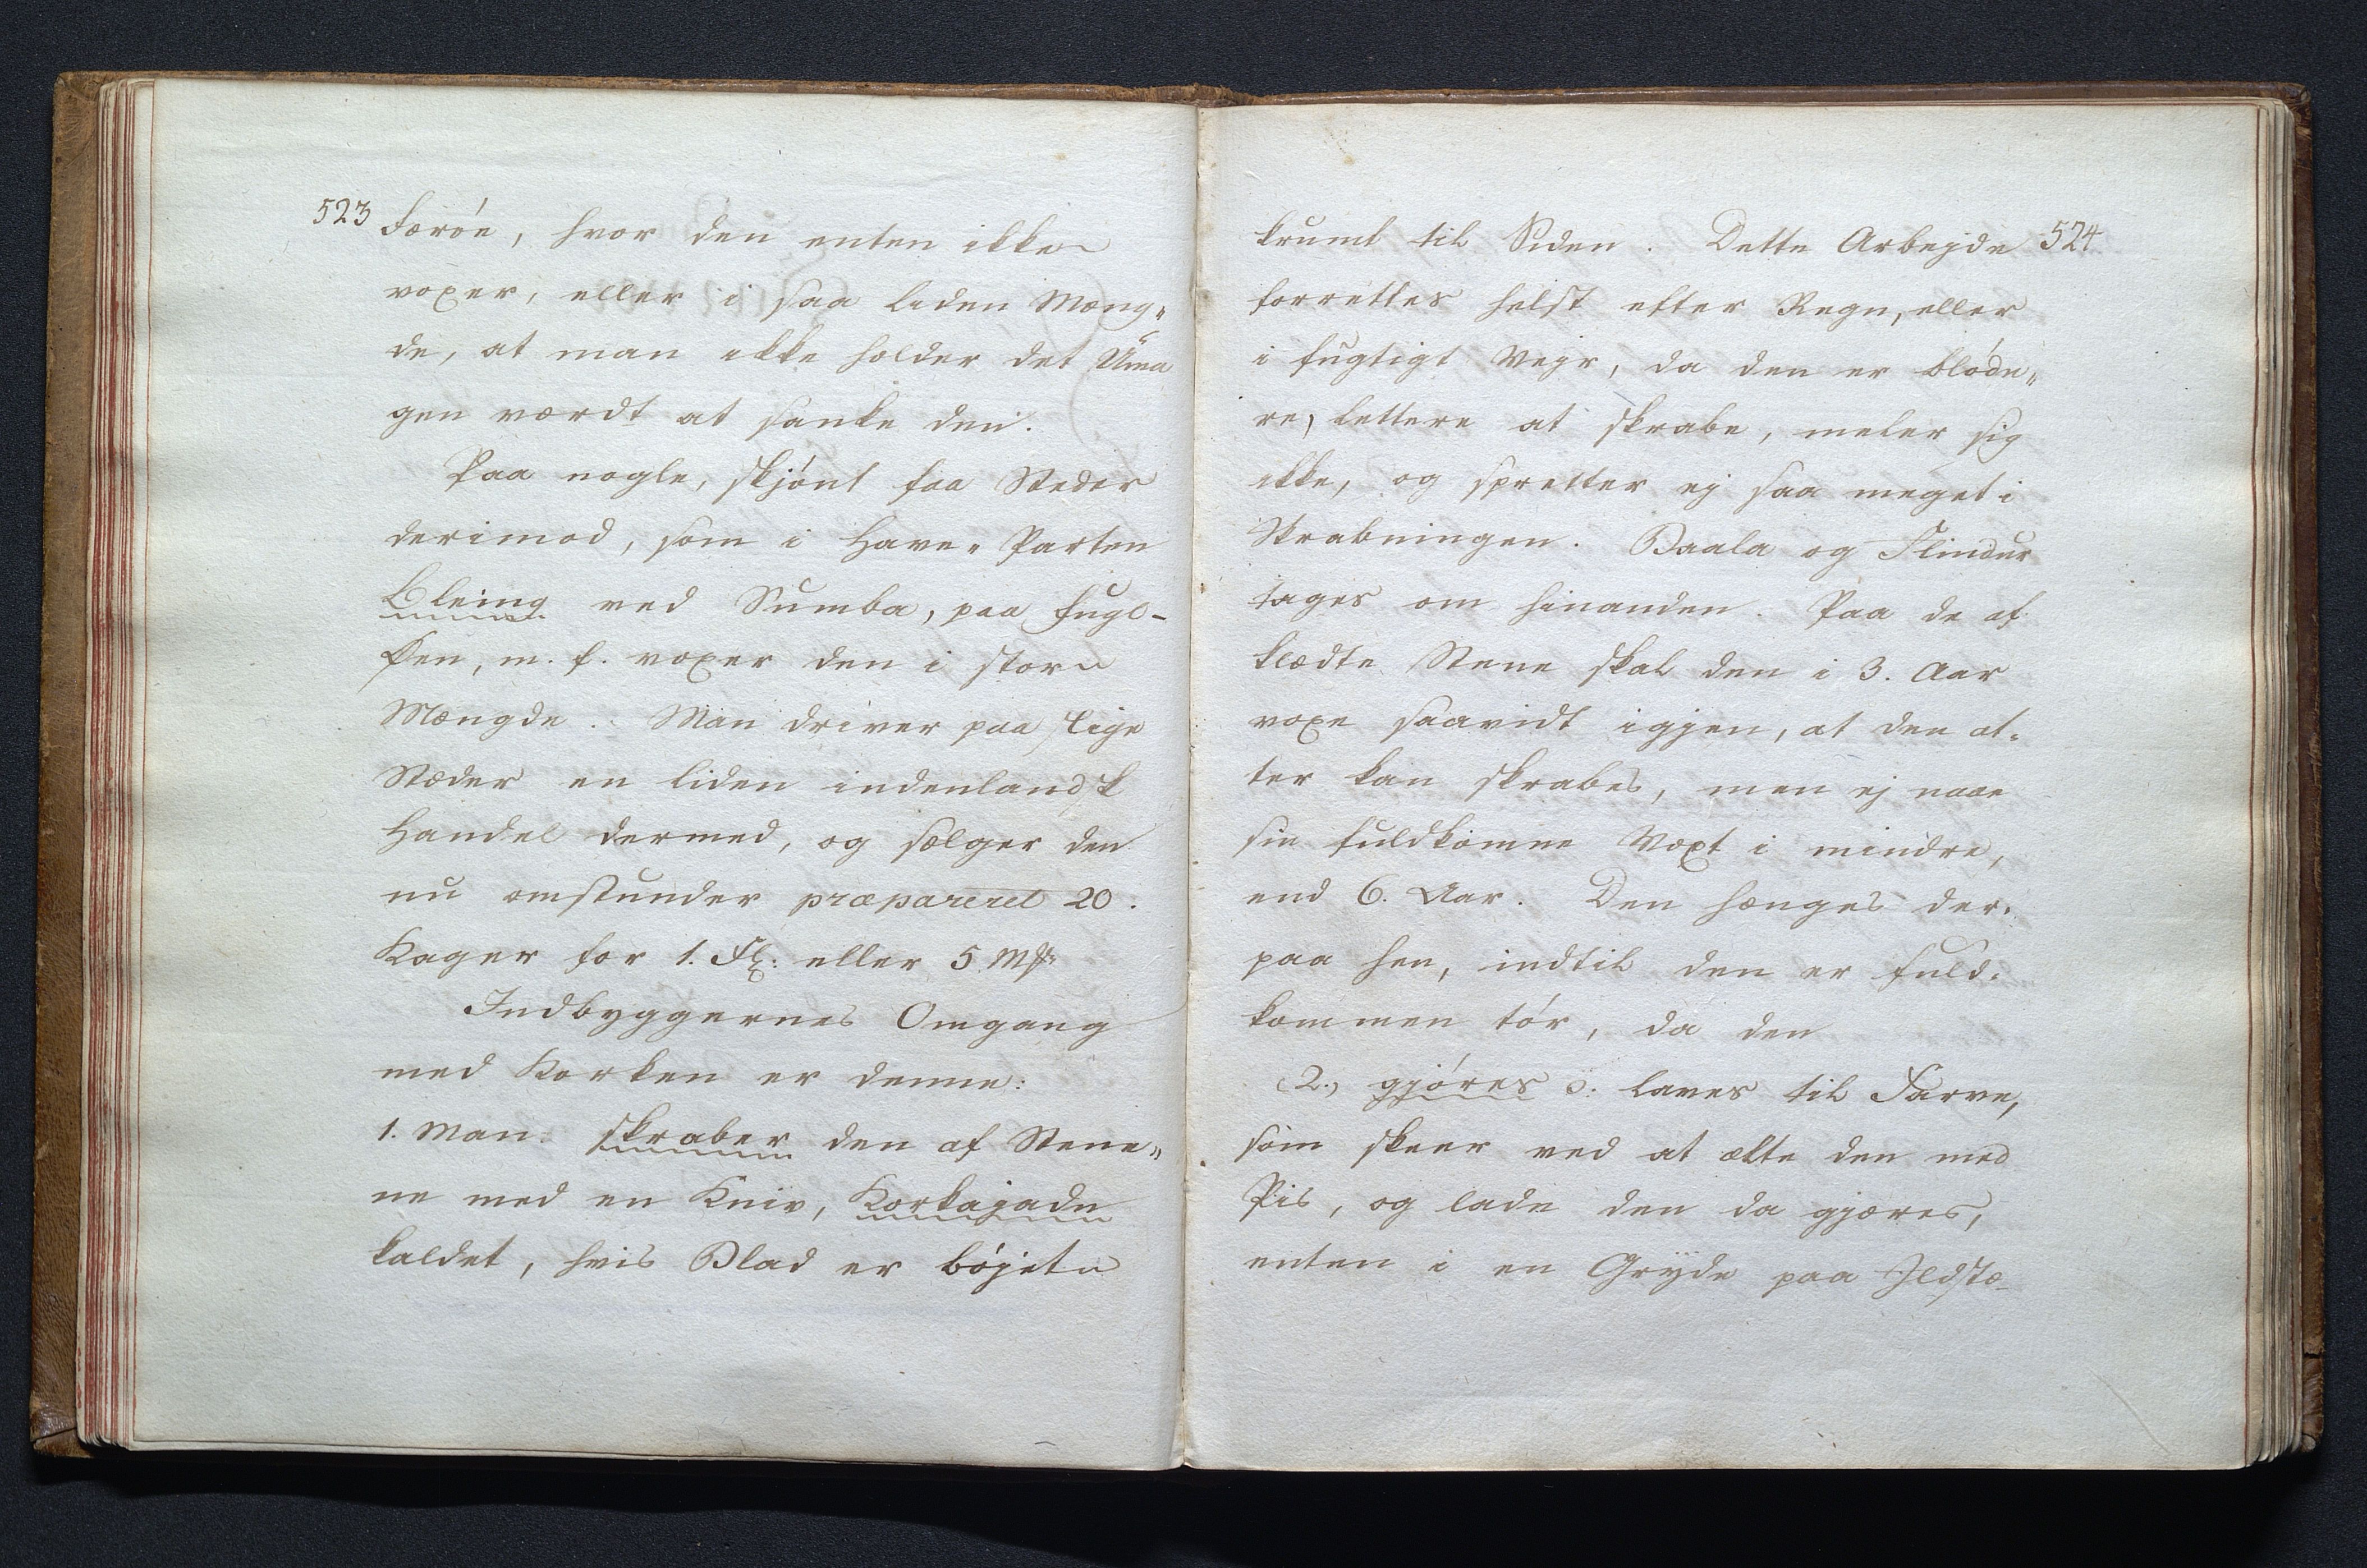 523
Færöe, hvor den enten ikke
voxer, eller i saa liden Mæng„
de, at man ikke holder det Uma
gen værdt at sanke den.
Paa nogle, skjönt faa Steder
derimod, som i Have„Parten
Bleing ved Sumba, paa Fugl-
Öen, m. f. voxer den i store
Mængde. Man driver paa slige
Stæder en liden indenlandsk
Handel dermed, og sælger den
nu omstunder præpareret 20.
Kager for 1. Sk: eller 5
Indbyggernes Omgang
med Korken er denne:
1. Man skraber den af Stene„
ne med en Kniv, Korkajadn
kaldet, hvis Blad er böjet
524
krumt til Siden. Dette Arbejde
forrettes helst efter Regn, eller
i fugtigt Vejr, da den er blöde„
re, lettere at skrabe, meler sig
ikke, og spretter ej saa meget i
Skrabningen. Baala og Flindur
tages om hinanden. Paa de af
klædte Stene skal den i 3. Aar
voxe saavidt igjen, at den at„
ter kan skrabes, men ej naae
sin fuldkomne Væxt i mindre,
end 6. Aar. Den hænges der„
paa hen, indtil den er fuld„
kommen tör, da den
2., gjöres ɔ: laves til Farve,
som skeer ved at ælte den med
Pis, og lade den da gjæres,
enten i en Gryde paa Ildstæ-